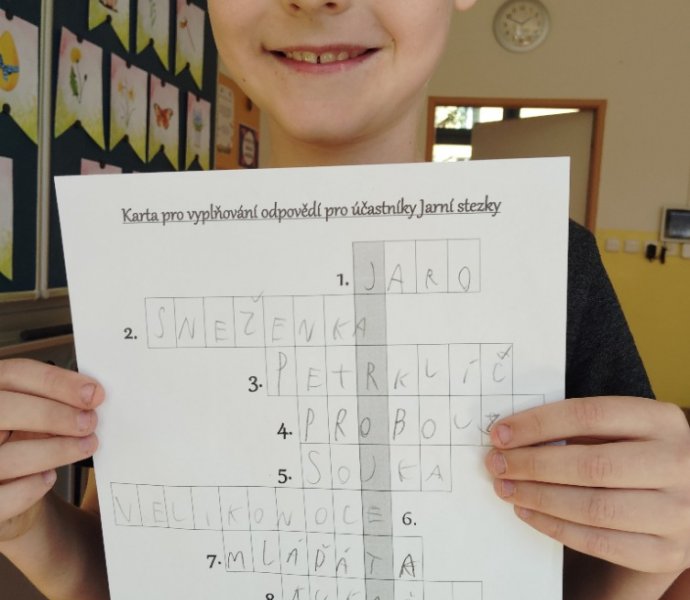 Karta pro vyplňování odpovědí pro účastníky Jarní stezky
1. JARO
2. SNEŽENKA
3. PETRKLÍČ
4.
5. SOJKA
VELIKONOCE 6.
7. MLÁĎATA
8.